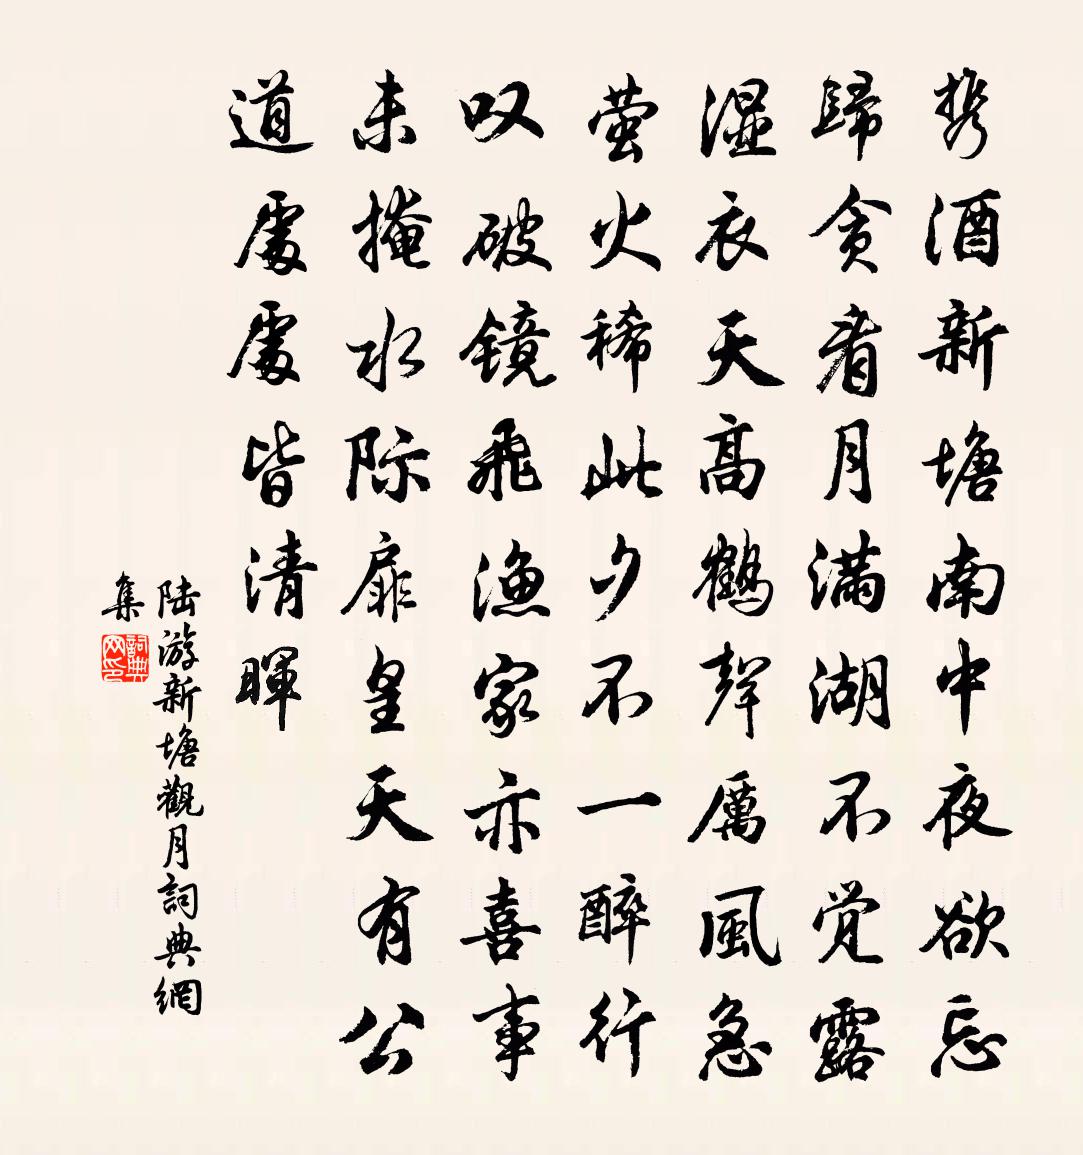 携酒新塘南中夜欲忘
歸贪看月满湖不觉露
湿衣天高鶴聲厲風急
萤火稀此夕不一醉行
叹破镜飛渔家亦喜事
未掩水际扉皇天有公
道處處皆清暉
陆游新塘觀月詞典網
集
詞典网印